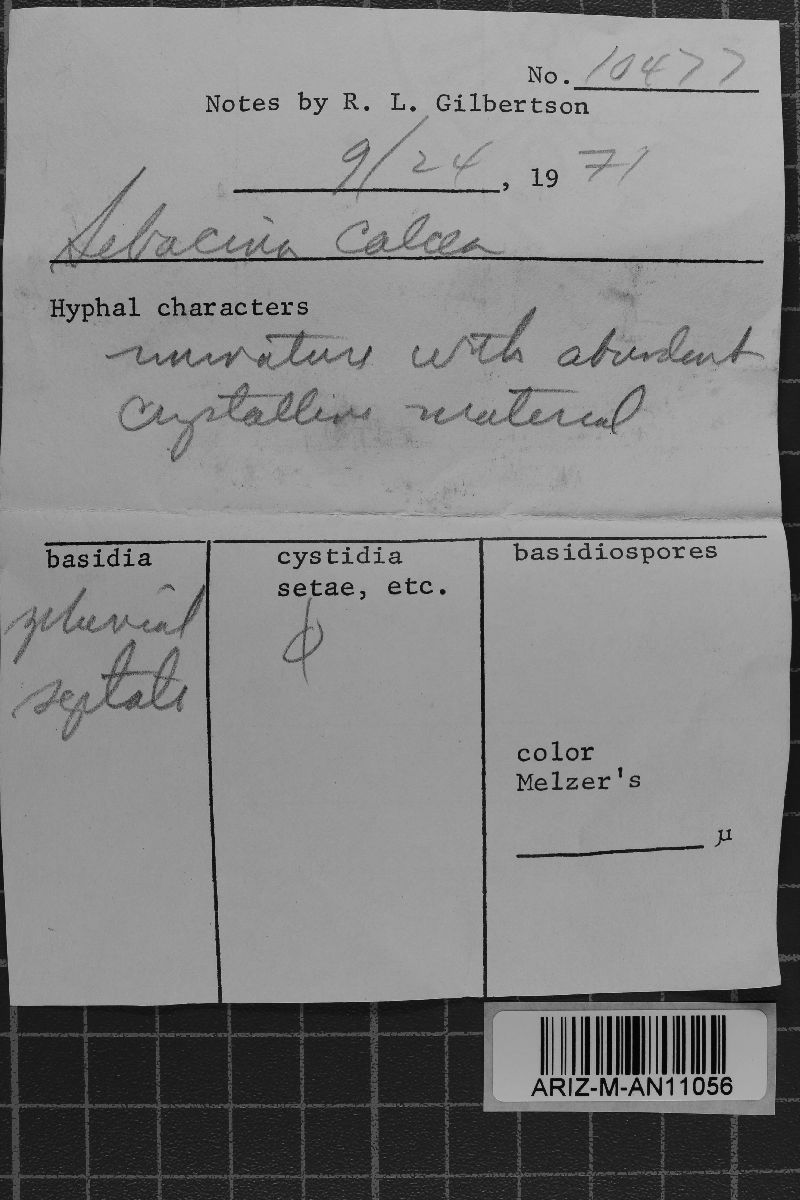 No. 10477
Notes by R. L. Gilbertson
9/24, 1971
Sebacina calcea
Hyphal characters
with abundant
crystalline material
basidia
cystidia
setae, etc.
basidiospores
pluvial
septate
φ
color
Melzer's
µ
ARIZ-M-AN11056